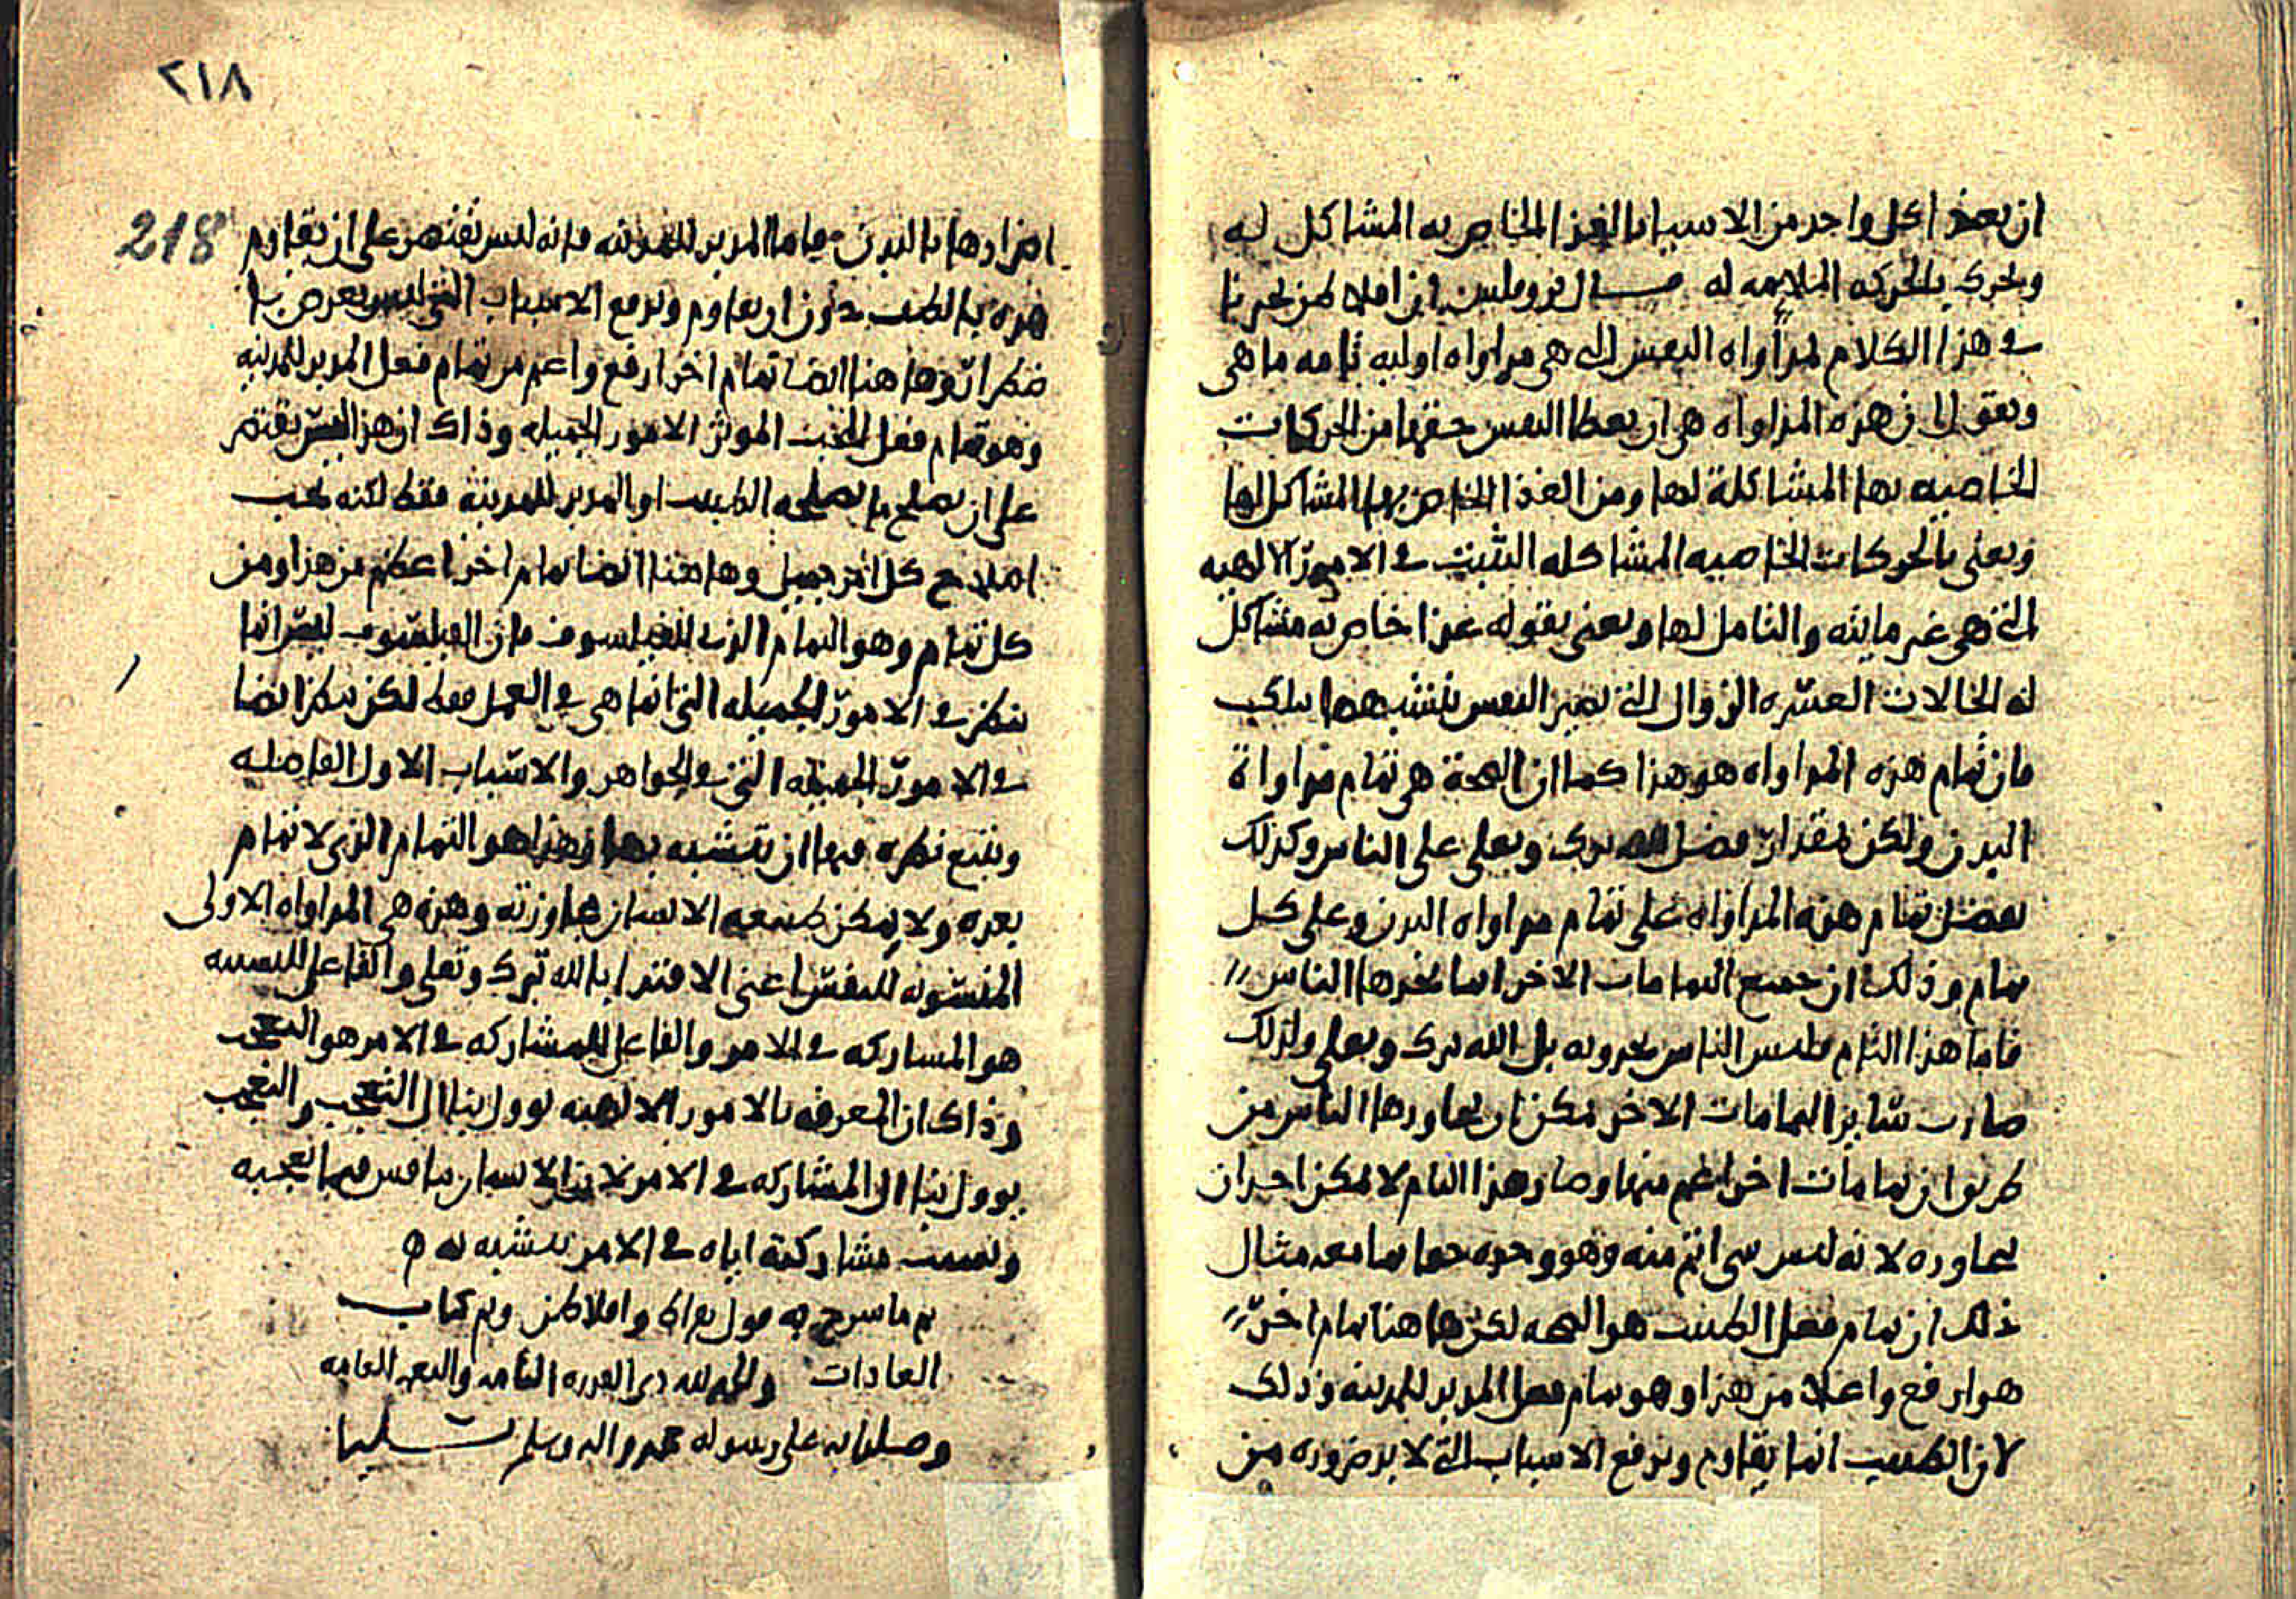 ان يغذا كل واحد من الاسباب بالغذا الخاص به المشاكل له
ويحرك بالحركه الملايمه له قال روفلس ان افلاطن يخبرنا
في هذا الكلام لمداواه النفس التي هي مداواه اوليه تامه ما هي
ويقول ان هذه المداواه هي ان يعطا النفس حقها من الحركات
الخاصيه بها المشاكلة لها ومن الغذا الخاص بها المشاكل لها
ويعني بالحركات الخاصيه المشاكله التثبت في الامور الالهيه
التي هي غير مايته والتامل لها ويعني بقوله غذا خاص به مشاكل
له الحالات العسره الزوال التي تصير النفس تتشبه بها بتلك
فان تمام هذه المداواه هو هذا كما ان الصحة هي تمام مداواة
البدن ولكن بمقدار فضل الله تبرك وتعلى على الناس وكذلك
يفضل تمام هذه المداواه على تمام مداواه البدن وعلى كل
تمام وذلك ان جميع التمامات الاخر انما يخبرها الناس
فاما هذا التام فليس الناس يخبرونه بل الله تبرك وتعلى ولذلك
صارت ساير التمامات الاخر يمكن ان يجاوزها الناس من
طريق ان تمامات اخر اعم منها وصار هذا التام لا يمكن احد ان
يجاوزه لانه ليس شي اتم منه وهو وحده تماما معه مثال
ذلك ان تمام فعل الطبيب هو الصحه لكن ها هنا تمام اخر
هو ارفع واعلا من هذا وهو تمام فعل المدبر للمدينه وذلك
لان الطبيب انما يقاوم ويدفع الاسباب التي لا بد ضروره من
٢١٨
218
اضرارها بالبدن فاما المدبر للمدينه فانه ليس يقتصر على ان يقاوم
هذه بالطب دون ان يقاوم ويدفع الاسباب التي ليس يعرض بها
ضطرار وها هنا ايضا تمام اخر ارفع واعم من تمام فعل المدبر للمدينه
وهو تمام فعل المحب الموثر الامور الجميله وذاك ان هذا ليس يقتصر
على ان يصلح ما يصلحه الطبيب او المدبر للمدينه فقط لكنه يحب
اصلاح كل امر جميل وها هنا ايضا تمام اخر اعظم من هذا ومن
كل تمام وهو التمام الذي للفيلسوف فان الفيلسوف ليس انما
ينظر في الامور الجميله التي انما هي في العمل فقط لكن ينظر ايضا
في الامور الجميله التي في الجواهر والاسباب الاول الفاضله
ويتبع نظره فيها ان يتشبه بها وهذا هو التمام الذي لا تمام
بعده ولا يمكن طبيعه الانسان مجاوزته وهذه هي المداواه الاولى
المنسوبه للنفس اعني الاقتدا بالله تبرك وتعلى والفاعل للتشبه
هو المشاركه في الامر والفاعل للمشاركه في الامر هو التعجب
وذاك ان المعرفه بالامور الالهيه توول بنا الى التعجب والتعجب
يوول بنا الى المشاركه في الامر لان الانسان ينافس فيما يعجبه
وبسبب مشاركته اياه في الامر يتشبه به ه
تم ما شرح به قول بقراط وافلاطن وتم كتاب
العادات والحمد لله ذي القدره التامه والنعم العامه
وصلواته على رسوله محمد واله وسلم تسليما